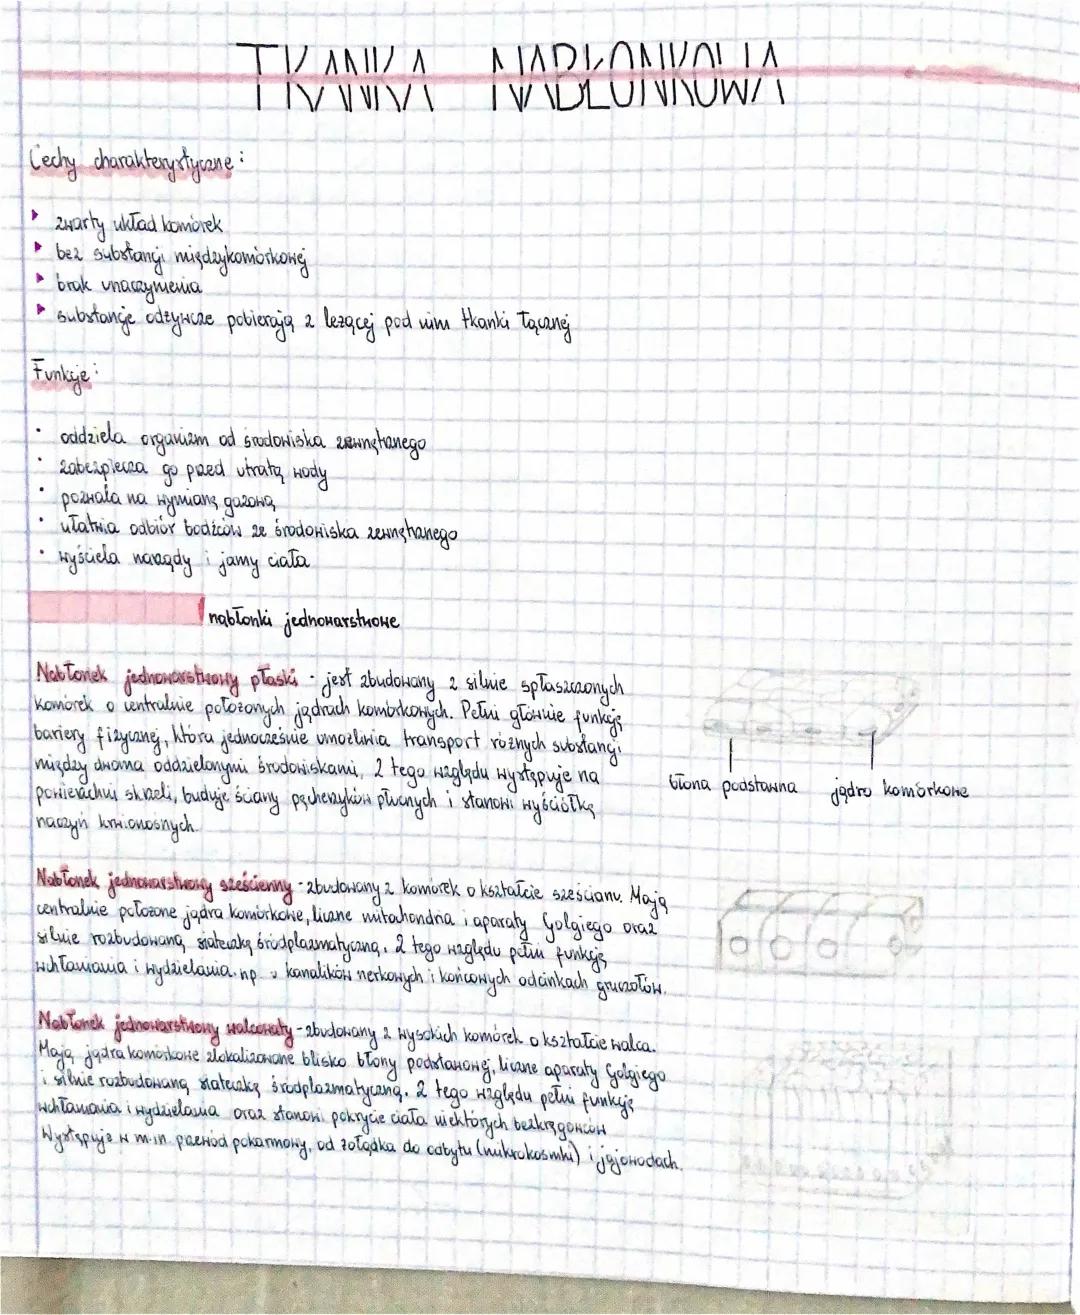 TKANKA NABŁONKOWA
Cechy charakterystyczne:
zwarty układ komórek
bez substancji międzykomórkowej
brak unaczynienia
substancje odżywcze pobierają z leżącej pod nim tkanki łącznej
Funkcje:
oddziela organizm od środowiska zewnętrznego
zabezpiecza go przed utratą wody
pozwala na wymianę gazową
ułatwia odbiór bodźców ze środowiska zewnętrznego
wyściela narządy i jamy ciała
nabłonki jednowarstwowe
Nabłonek jednowarstwowy płaski - jest zbudowany z silnie spłaszczonych
komórek o centralnie położonych jądrach komórkowych. Pełni głównie funkcję
bariery fizycznej, która jednocześnie umożliwia transport różnych substancji
między dwoma oddzielonymi środowiskami, z tego względu występuje na
powierzchni skrzeli, buduje ściany pęcherzyków płucnych i stanowi wyściółkę
naczyń krwionośnych.
błona podstawna jądro komórkowe
Nabłonek jednowarstwowy sześcienny - zbudowany z komórek o kształcie sześcianu. Mają
centralnie położone jądra komórkowe, liczne mitochondria i aparaty Golgiego oraz
silnie rozbudowaną siateczkę śródplazmatyczną. Z tego względu pełni funkcję
wchłaniania i wydzielania. np. w kanalików nerkowych i końcowych odcinkach gruczołów.
Nabłonek jednowarstwowy walcowaty - zbudowany z wysokich komórek o kształcie walca.
Mają jądra komórkowe zlokalizowane blisko błony podstawowej, liczne aparaty Golgiego
i silnie rozbudowaną siateczkę śródplazmatyczną. Z tego względu pełni funkcję
wchłaniania i wydzielania oraz stanowi pokrycie ciała niektórych bezkręgowców
Występuje w m.in. przewód pokarmowy, od żołądka do odbytu (mikrokosmki) i jajowodach.